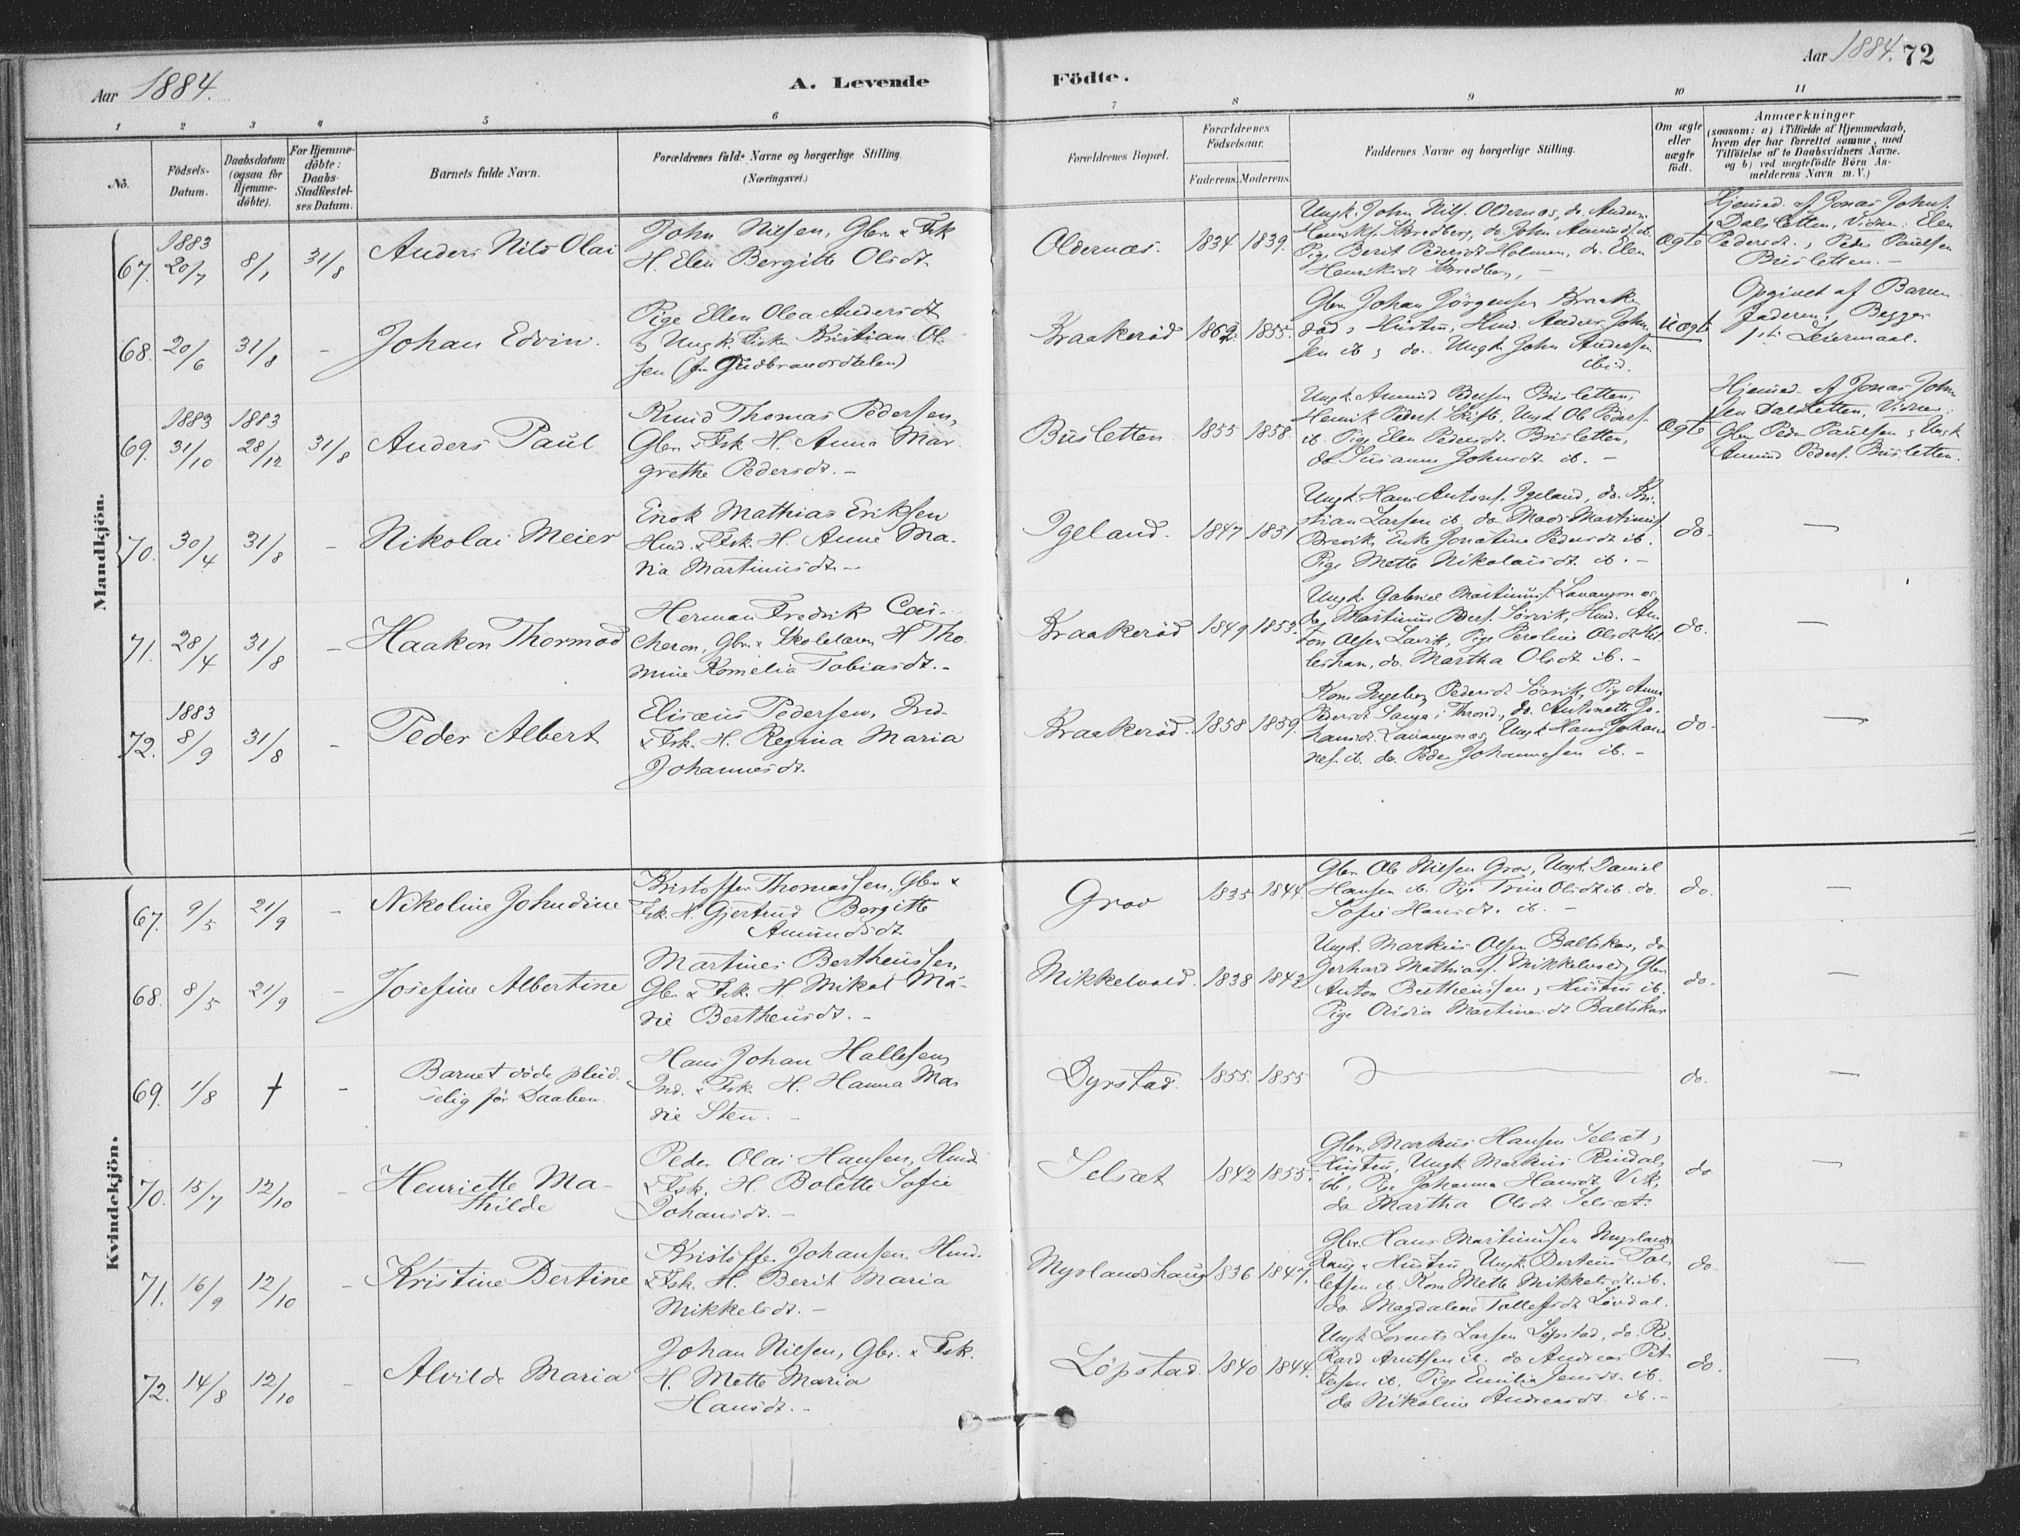 Aar 1884.
A. Levende
Födte.
Aar 1884. 72
1 2 3 4 5 6 7 8 9 10 11
No.
Födsels-
Datum.
Daabsdatum
(ogsaa for
Hjemme-
döbte).
For Hjemme-
döbte:
Daabs-
Stadfæstel-
ses Datum.
Barnets fulde Navn.
Forældrenes fulde Navne og borgerlige Stilling.
(Næringsvei.)
Forældrenes Bopæl.
Forældrenes
Födselsaar.
Faderens. Moderens.
Faddernes Navne og borgerlige Stilling.
Om ægte
eller
uægte
födt.
Anmærkninger
(saasom: a) i Tilfælde af Hjemmedaab,
hvem der har forrettet samme, med
Tilföielse af to Daabsvidners Navne.
og b) ved uægtefödte Börn An-
melderens Navn m. V.)
Mandkjön.
67. 1883 20/7 8/1 31/8 Anders Nils Olai
John Nilsen, Gbr. & Fsk
H. Elen Bergitte Olsdt.
Oldernæs. 1834 1839.
Ungk. John Nils. Oldernæs, do. Anders
Henriks. Bredberg, do. John Amunds. ib.
Pige Berit Pedersdt Holmen, do. Elen
Henriksdt Bredberg, –
Ægte
Hjemmed. af Jonas Johns.
Dalsletten, Vidner: Elen
Pedersdt., Peder Paulsen
Brusletten. –
68. 20/6 31/8 – Johan Edvin.
Pige Ellen Olea Andersdt
& Ungk. Fisk. Kristian Ol-
sen (fra Gudbrandsdalen)
Kraakeröd 1862. 1855.
Gbr. Johan Jörgensen Kraake-
röd, Hustru, Hmd. Anders John-
sen ib, do. Ungk. John Andersen
ibid.
Uægt.
Opgivet af Barne-
faderen, Begges
1ste Leiermaal.
69. 1883 31/10 1883 28/12 31/8 Anders Paul
Knud Thomas Pedersen,
Gbr. & Fsk. H. Anna Mar-
grethe Pedersdt. –
Brusletten 1855 1858.
Ungk. Amund Pedersen Brusletten,
Henrik Peders. Skift., Ungk. Ole Peders.
ib. Pige Elen Pedersdt. Brusletten,
do Susanna Johnsdt. ib. –
Ægte
Hjemmed. af Jonas John-
sen Dalsletten, Vidner:
Gbr. Peder Paulsen, Ungk
Amund Peders. Brusletten.
70. 30/4 31/8 – Nikolai Meier
Enok Mathias Eriksen
Hmd. & Fsk. H. Anne Ma-
ria Martinusdt. –
Igeland. 1847 1851
Ungk. Hans Antons. Igeland, do. Kri-
stian Larsen ib. do Mads Martinus.
Brevik, Enke Jonetine Pedersdt ib.
Pige Mette Nikolaisdt. ib. –
do. –
71. 28/4 31/8 – Haakon Thormod
Herman Fredrik Coi-
cheron, Gbr. & Skolelærer, H Tho-
mine Kornelia Tobiasdt. –
Kraakeröd 1849 1853.
Ungk. Gabriel Martinus. Lavangsnæs,
do, Martinus Peders. Sörvik, Hmd. An-
ton Olsen Lavik, Pige Peroline Olsdt
do. Martha Olsdt ib. –
do. –
72. 1883 8/9 31/8 – Peder Albert
Elisæus Pedersen, Ind.
& Fsk. H. Regina Maria
Johannesdt.
Kraakeröd. 1858 1859.
Kone Ingeborg Pedersdt Sörvik, Pige Anna
Pedersdt Sanga i Thronds, do. Antonette Jo-
hansdt. Lavangsnæs, Ungk Hans Johan-
nes. ib. do. Peder Johannesen ib. –
do. –
Kvindekjön.
67. 9/5 21/9 – Nikoline Johndine
Kristoffer Thomassen, Gbr. &
Fsk. H. Gjertrud Bergitte
Amundsdt
Grov 1835 1844.
Gbr. Ole Nielsen Grov, Ungk. Daniel
Hansen ib. Pige Trine Olsdt ib. do.
Sofie Hansdt. ib. –
do. –
68. 8/5 21/9 – Josefine Albertine
Martines Bertheussen
Gbr. & Fsk. H. Mikal Ma-
rie Bertheusdt. –
Mikkelvold. 1838 1842
Ungk. Markus Olsen Baltskar, do
Gerhard Mathias. Mikkelvold, Gbr.
Anton Bertheussen, Hustru ib.
Pige Ovidia Martinesdt Baltskar
do. –
69. 1/8 † – Barnet döde plud-
selig för Daaben.
Hans Johan Hallesen,
Ind. & Fsk. H. Hanna Ma-
rie Sten. –
Dyrstad. 1855. 1855
do. –
70. 15/7 12/10 – Henriette Ma-
thilde
Peder Olai Hansen, Hmd
& Fsk. H. Bolette Sofie
Johansdt. –
Selsæt 1842 1855.
Gbr. Markus Hansen Selsæt,
Hustru, Ungk Markus Rindal,
ib. Pige Johanna Hansdt Vik,
do Martha Olsdt Selsæt.
do –
71. 16/9 12/10 – Kristine Bertine
Kristoffer Johansen Hmd.
& Fsk. H. Berit Maria
Mikkelsdt. –
Myrlandshaug 1836 1847.
Gbr. Hans Martinussen Myrlands-
haug & Hustru, Ungk. Berteus Tol-
lefsen ib. Kone Mette Mikkelsdt. ib.
do Magdalene Tollefsdt Lövdal.
do –
72. 14/8 12/10 – Alvilde Maria
Johan Nilsen, Gbr. & Fsk.
H. Mette Maria
Hansdt. –
Löpstad. 1840 1844.
Ungk. Lorents Larsen Löpstad, do. Ri-
kard Arntsen ib. do Andreas Pet-
tersen ib. Pige Emilia Jensdt. ib.
do Nikoline Andreasdt ib. –
do. –